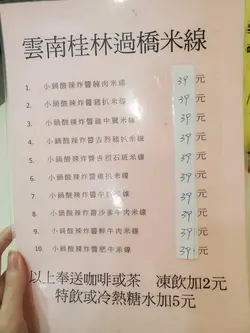 雲南桂林過橋米線
1. 小鍋酸辣炸醬豬肉米線 39 元
2. 小鍋酸辣炸醬豬扒米線 39 元
3. 小鍋酸辣炸醬雞中翼米線 39 元
4. 小鍋酸辣炸醬吉烈豬扒米線 39 元
5. 小鍋酸辣炸醬吉烈石斑米線 39 元
6. 小鍋酸辣炸醬雞扒米線 39 元
7. 小鍋酸辣炸醬牛 米線 39 元
8. 小鍋酸辣炸醬沙爹牛肉米線 39 元
9. 小鍋酸辣炸醬鮮牛肉米線 39 元
10. 小鍋酸辣炸醬肥牛米線 39 元
以上奉送咖啡或茶 凍飲加2元
特飲或冷熱糖水加5元